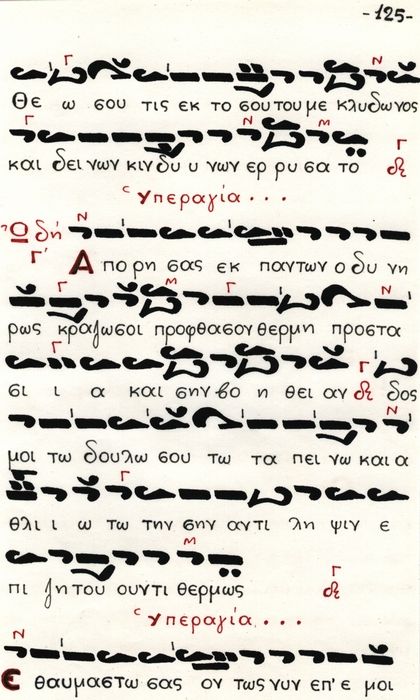 -125-
Θε ω σου τις εκ το σου του με κλυδωνος
και δει νων κιν δυ υ νων ερ ρυ σα το
Ὑπεραγία...
ᾨδή Γ΄
Α πο ρη σας εκ παντων ο δυ νη
ρως κραζωσοι προφθασον θερμη προστα
σι ι α και σην βο η θει αν δος
μοι τω δουλω σου τω τα πει νω και α
θλι ι ω τω την σην αντι λη ψιν ε
πι ζη του ουντι θερμως
Ὑπεραγία...
Ε θαυμαστω σας ον τως νυν επ'ε μοι